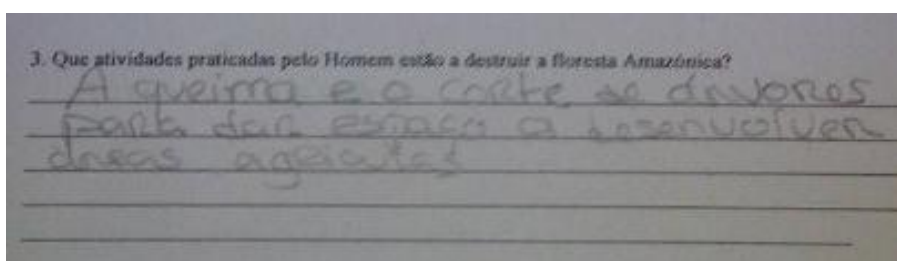 3. Que atividades praticadas pelo Homem estão a destruir a floresta Amazónica?
A queima e o corte de árvores
para dar espaço a desenvolver
áreas agrícolas